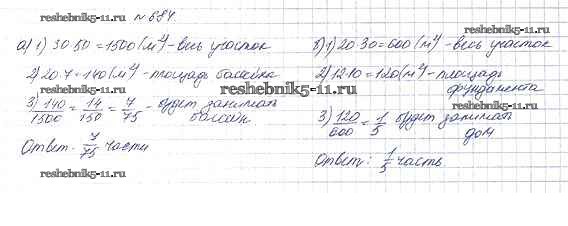 reshebnik5-11.ru
№ 684
а) 1) 30·50=1500 (м²) - весь участок
2) 20·7=140 (м²) - площадь бассейна
3) 140/1500 = 14/150 = 7/75 - будет занимать
бассейн.
Ответ: 7/75 части
reshebnik5-11.ru
reshebnik5-11.ru
reshebnik5-11.ru
reshebnik5-11.ru
б) 1) 20·30=600 (м²) - весь участок
2) 12·10=120 (м²) - площадь
фундамента
3) 120/600 = 1/5 будет занимать
дом
Ответ: 1/5 часть.
reshebnik5-11.ru
reshebnik5-11.ru
reshebnik5-11.ru